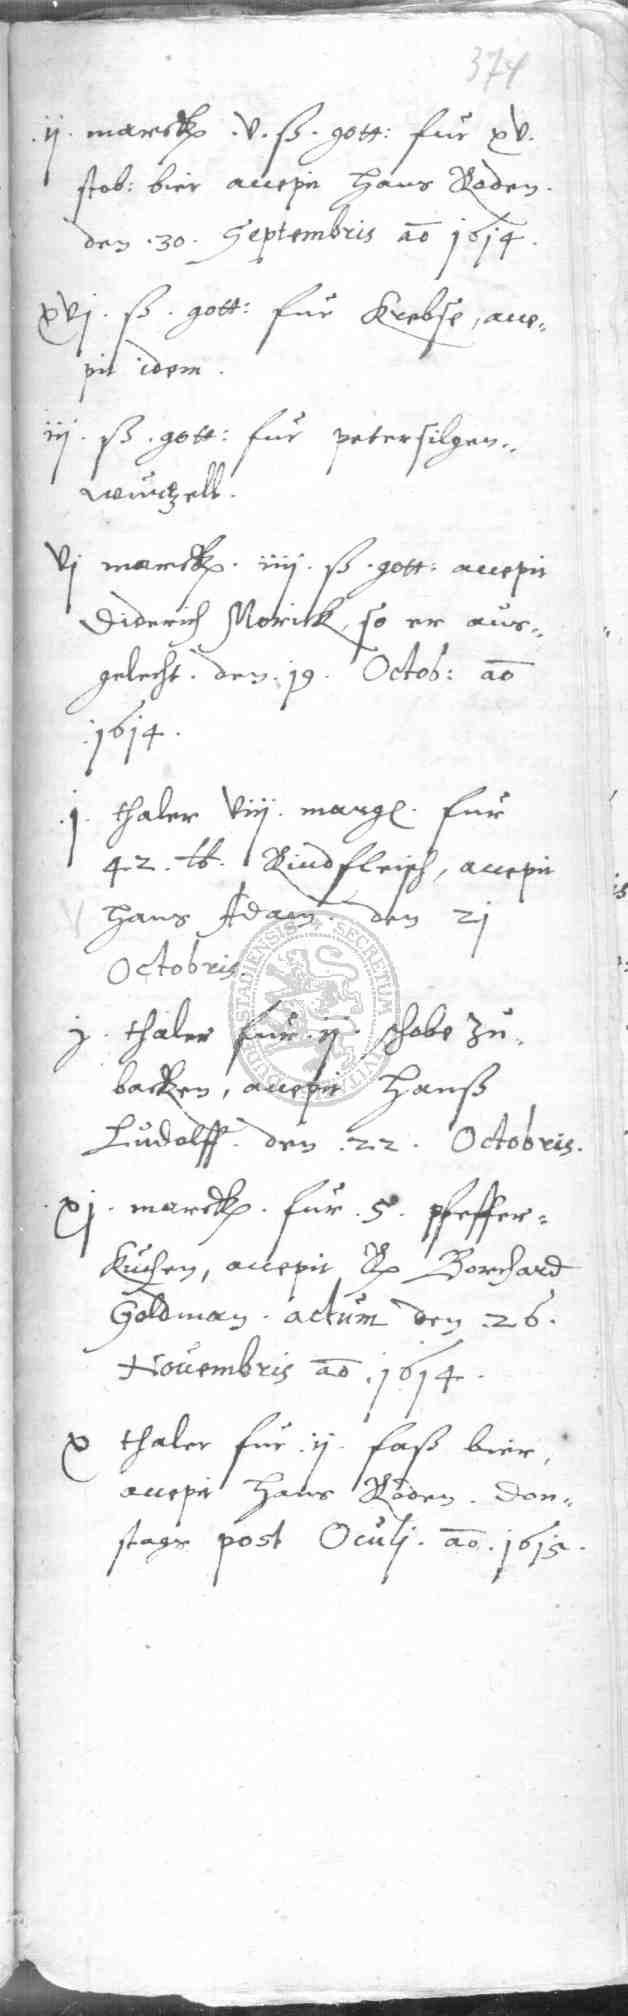 374
.ij. marck .v. ß. gott: fur xv.
stob: bier accepit Hans Roden.
den .30. Septembris ao 1614.
xvj. ß. gott: fur Krebse, acce„
pit idem.
iij. ß. gott: fur petersilgen„
wurtzell.
vj marck. iiij. ß. gott: accepit
Diderich Morick, so er aus„
gelecht. den. 19. Octob: ao
.1614.
.j. thaler viij. margl. fur
42. lb. Rindfleisch, accepit
Hans Adam. den 21
Octobris.
j. thaler fur .ij. schobe zu„
backen, accepit Hanß
Ludolff. den .22. Octobris.
.xj. marck. fur .5. pfeffer=
Kuchen, accepit Borchard
Goldman. actum den .26.
Novembris ao .1614.
x thaler fur .ij. faß bier,
accepit Hans Roden. Don„
stags post Oculj. ao. 1615.
BUDSTADIENSIS SECRETUM CIVIT